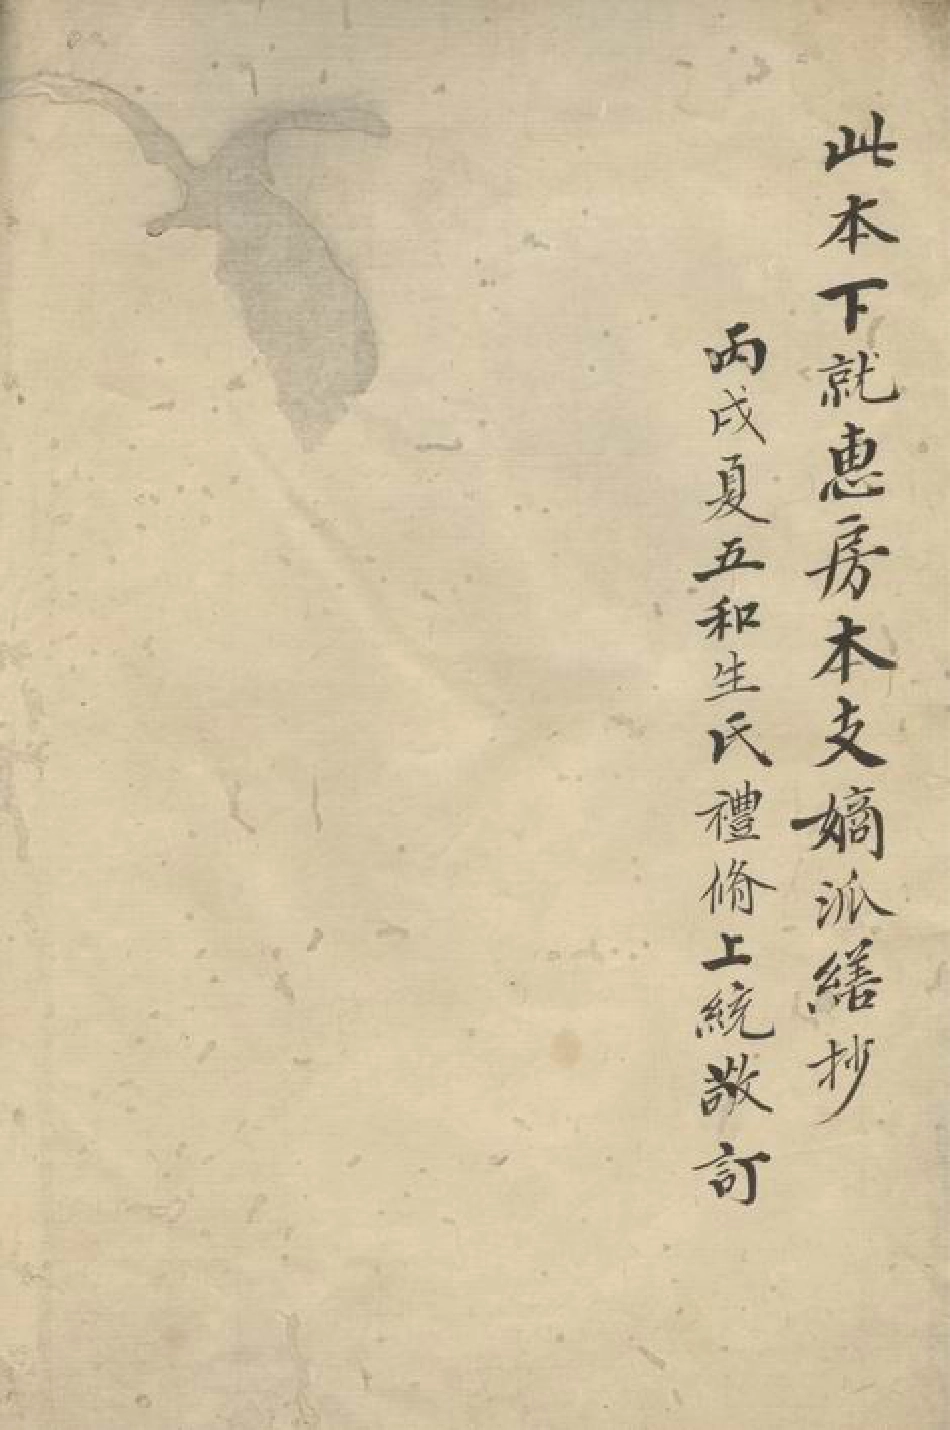 此本下就恵房本支嫡派繕抄
丙戌夏五和生氏禮脩上統敬訂